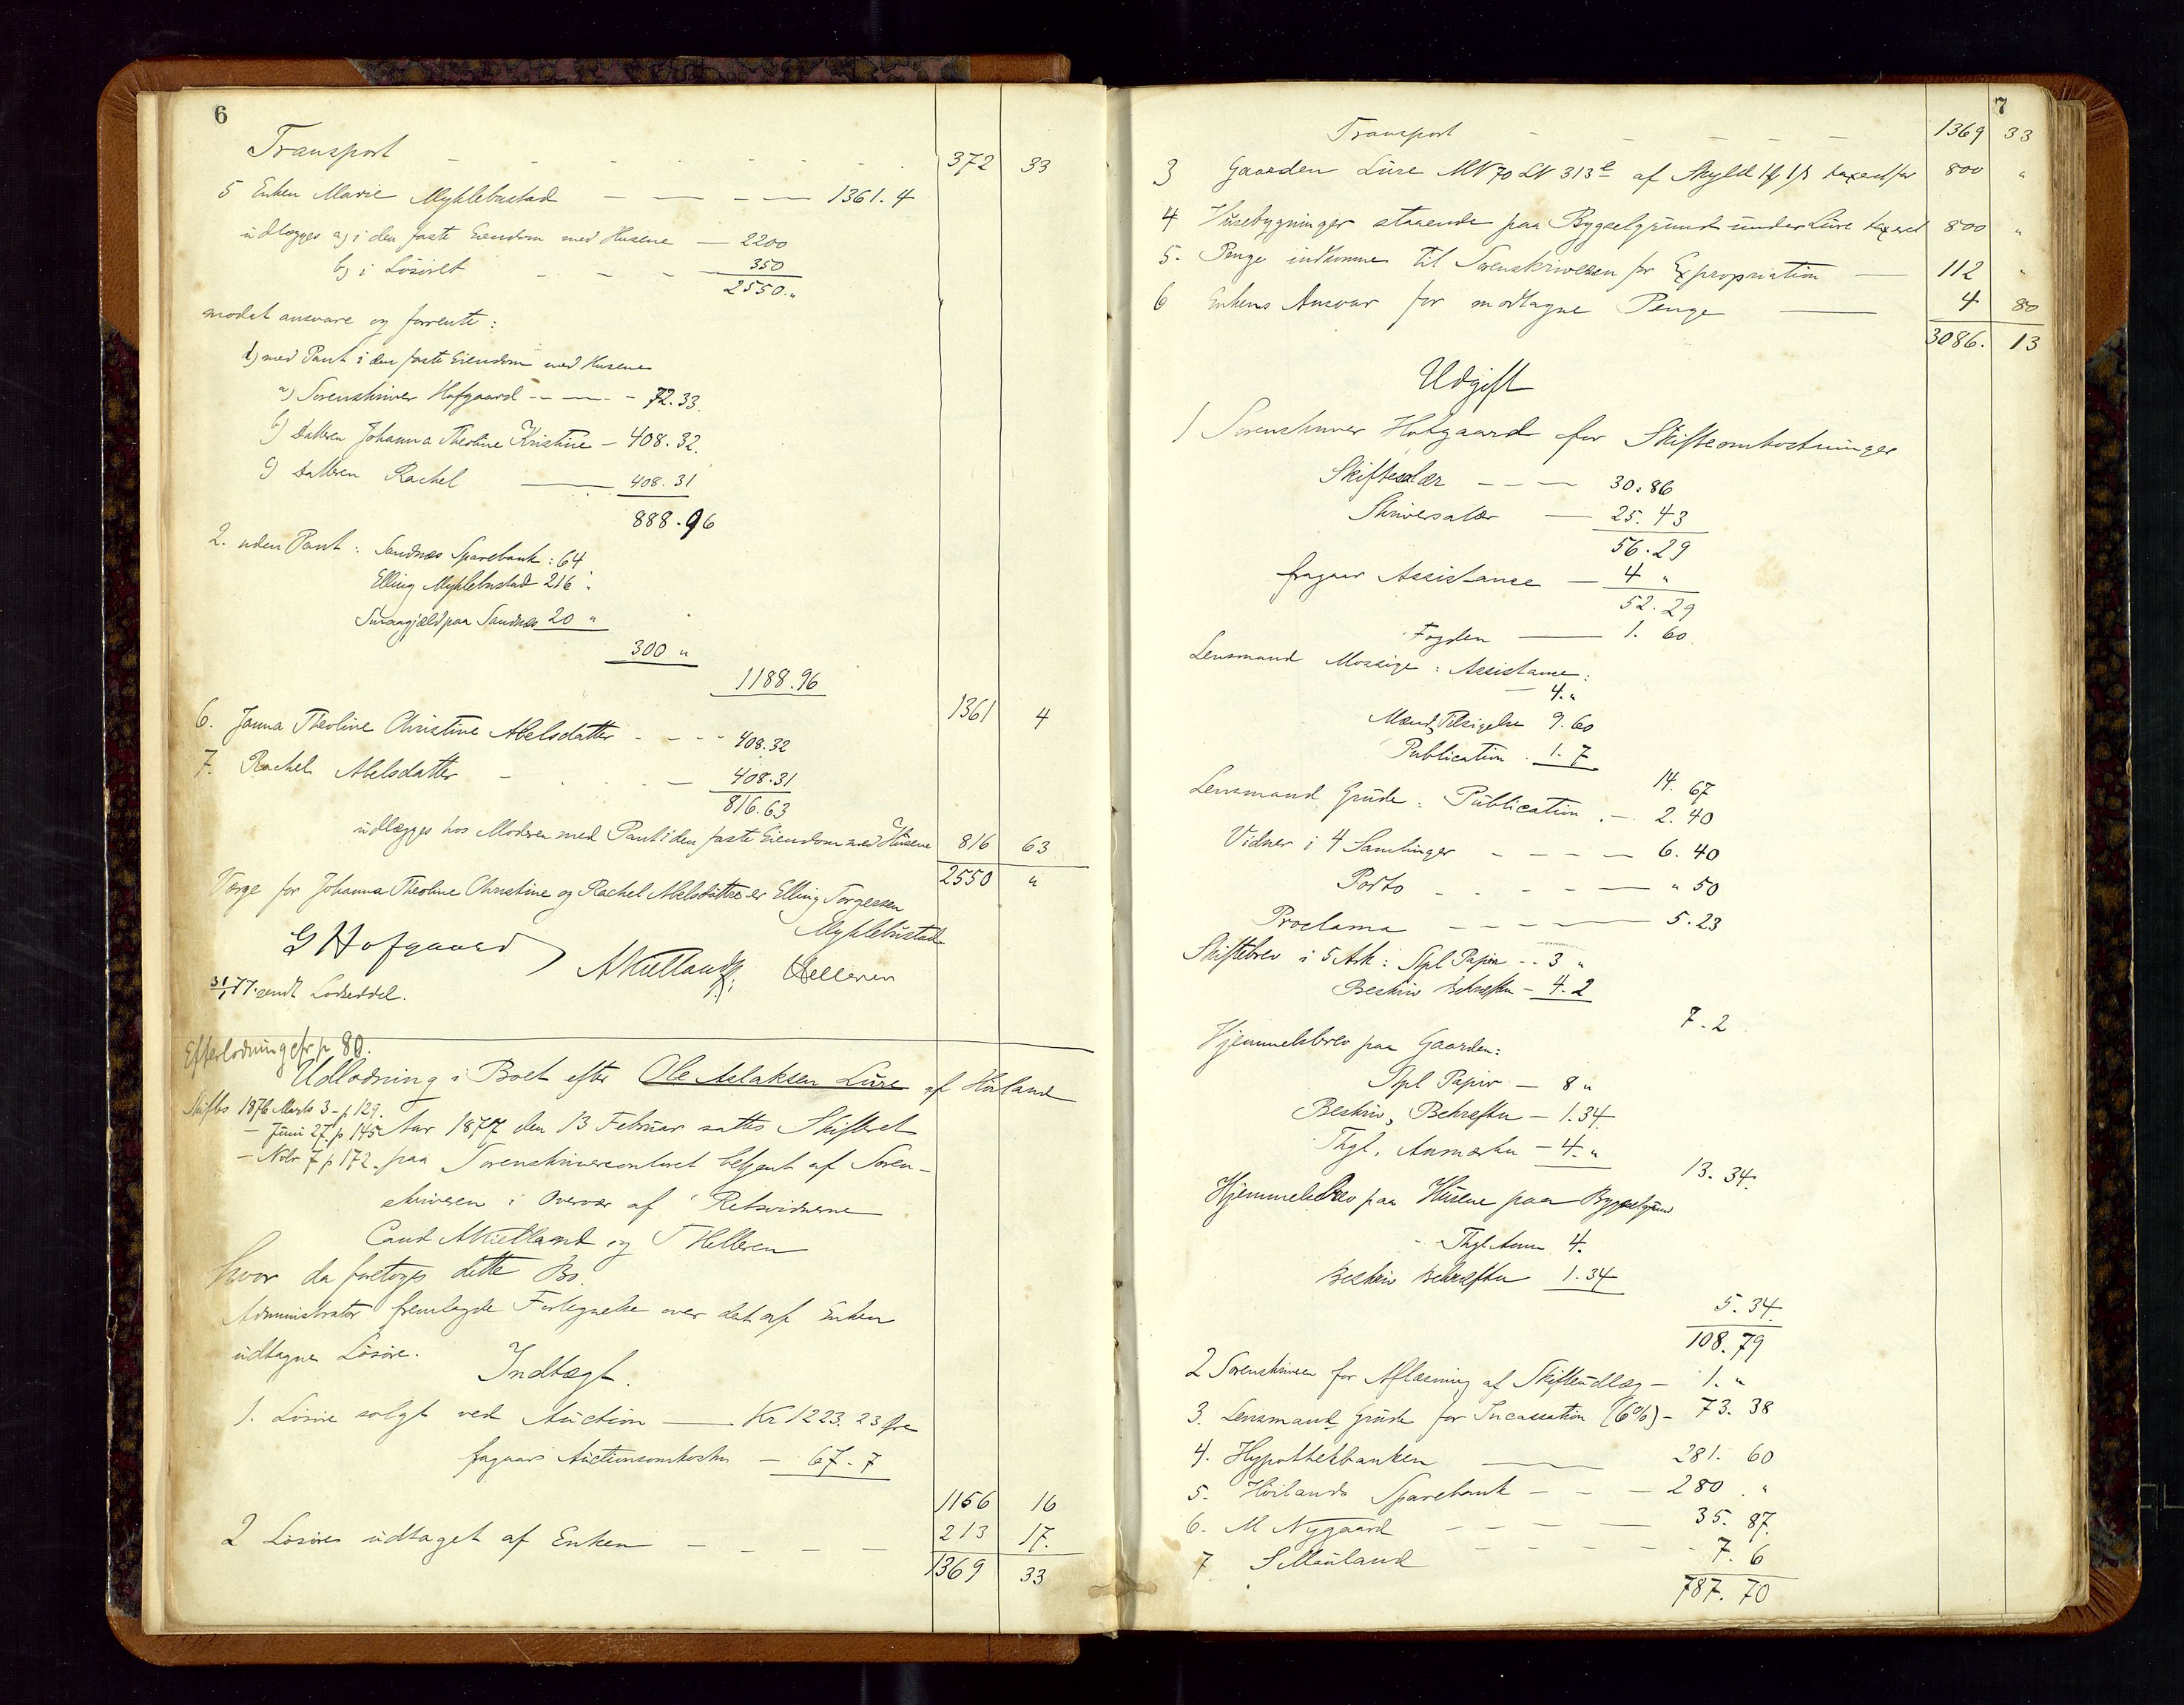 6
Transport - - - - - - - 372 33
5 Enken Marie Myklebustad — — — — 1361. 4
udlægges a) i den faste Eiendom med Husene — 2200
b) i Løsøret - - - — 350
2550. "
modat ansvare og forrente:
1) med Pant i den faste Eiendom med Husene
a) Sorenskriver Hofgaard - - — - - 72. 33.
b) Datteren Johanna Theoline Kristine — 408. 32.
c) Datteren Rachel — 408. 31
888. 96
2. uden Pant: Sandnæs Sparebank: 64
Elling Myklebustad 216 "
Smaagjæld paa Sandnæs 20 "
300 "
1188. 96
1361 4
6. Janna Theoline Christine Abelsdatter - - - - 408. 32
7. Rachel Abelsdatter - - - — 408. 31
816. 63
udlægges hos Moderen med Pant i den faste Eiendom med Husene 816 63
2550 "
Værge for Johanna Theoline Christine og Rachel Abelsdøttre er Elling Torgersen
Myklebustad
G Hofgaard AKielland THelleren
31/1 77. sendt Lodseddel.
Efterlodning cfr p. 80.
Udlodning i Boet efter Ole Aslaksen Lure af Høiland
Skiftes 1876 Marts 3 - p 129.
— Juni 27 p 145
— Novbr 7 p 172.
Aar 1877 den 13 Februar sattes Skifteret
paa Sorenskrivercontoret betjent af Soren-
skriveren i Overvær af Retsvidnerne
Cand AKielland og T Helleren
hvor da foretoges dette Bo.
Administrator fremlagde Fortegnelse over det af Enken
udtagne Løsøre.
Indtægt.
1. Løsøre solgt ved Auction — Kr 1223. 23 Øre
fragaar Auctionsomkostn — 67 - 7
1156 16
2 Løsøre udtaget af Enken - - - - 213 17.
1369 33
7
Transport - - - - - 1369 33
3 Gaarden Lure MN 70 LN 313 af Skyld taxeret for 800 "
4 Husebygninger staaende paa Bygselgrund under Lure taxeret 800 "
5. Penge indkomne til Sorenskriveren for Expropriation — 112 "
6 Enkens Ansvar for modtagne Penge — 4 80
3086. 13
Udgift
1 Sorenskriver Hofgaard for Skifteomkostninger
Skiftesalær - - — 30: 86
Skriversalær — 25. 43
56. 29
fragaar Assistance — 4 "
52. 29
Fogden — 1. 60.
Lensmand Mossige: Assistance:
— 4. "
Mænd, Tilsigelse 9. 60
Publication . 1. 7
14. 67
Lensmand Grude: Publication . — 2. 40
Vidner i 4 Samlinger - - - — 6. 40
Porto - - - - — " 50
Proclama - - - — 5. 23
Skiftebrev i 5 Ark: Stpl Papir - - 3 "
Beskriv Bekræftn — 4. 2
7. 2
Hjemmelsbrev paa Gaarden:
Stpl Papir — 8 "
Beskriv, Bekræftn — 1. 34.
Thgl. Anmærkn — 4. "
13. 34.
Hjemmelsbrev paa Husene paa Bygselgrund
Thgl Anm 4.
Beskriv Bekræftn 1. 34
5. 34.
108. 79
2 Sorenskriveren for Aflæsning af Skifteudlæg — 1. "
3. Lensmand Grude for Incassation (6%) — 73. 38
4. Hypothekbanken — 281. 60
5. Høilands Sparebank - - — 280. "
6. M Nygaard - - - — 35. 87.
7 S Mauland - - - - - 7. 6
787. 70